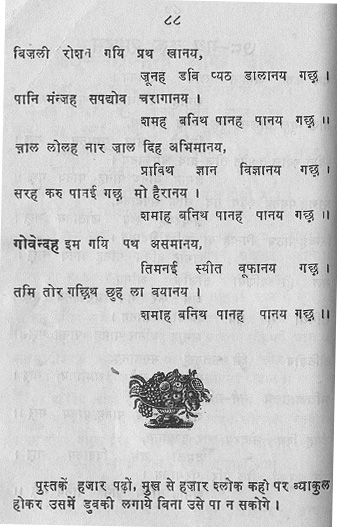 ८८
बिज़ली रोशन गयि प्रथ खानय,
जूनह डबि प्यठ डालानय गछ़ ।
पानि मंन्जह सपद्योव चरागानय ।
शमह बनिथ पानह पानय गछ़ ।।
ज़ाल लोलह नार ज़ाल दिह अभिमानय,
प्राविथ ज्ञान विज्ञानय गछ़ ।
सरह करु पानई गछ़ मो हैरानय ।
शमाह बनिथ पानह पानय गछ़ ।।
गोवेन्दह इम गयि पथ असमानय,
तिमनई स्यीत वूफानय गछ़ ।
तमि तोर गछिथ छुह ला बयानय ।
शमाह बनिथ पानह पानय गछ़ ।।
पुस्तकें हजार पढ़ों, मुख से हज़ार श्लोक कहो पर ब्याकुल
होकर उसमें डुबकी लगाये बिना उसे पा न सकोगे ।